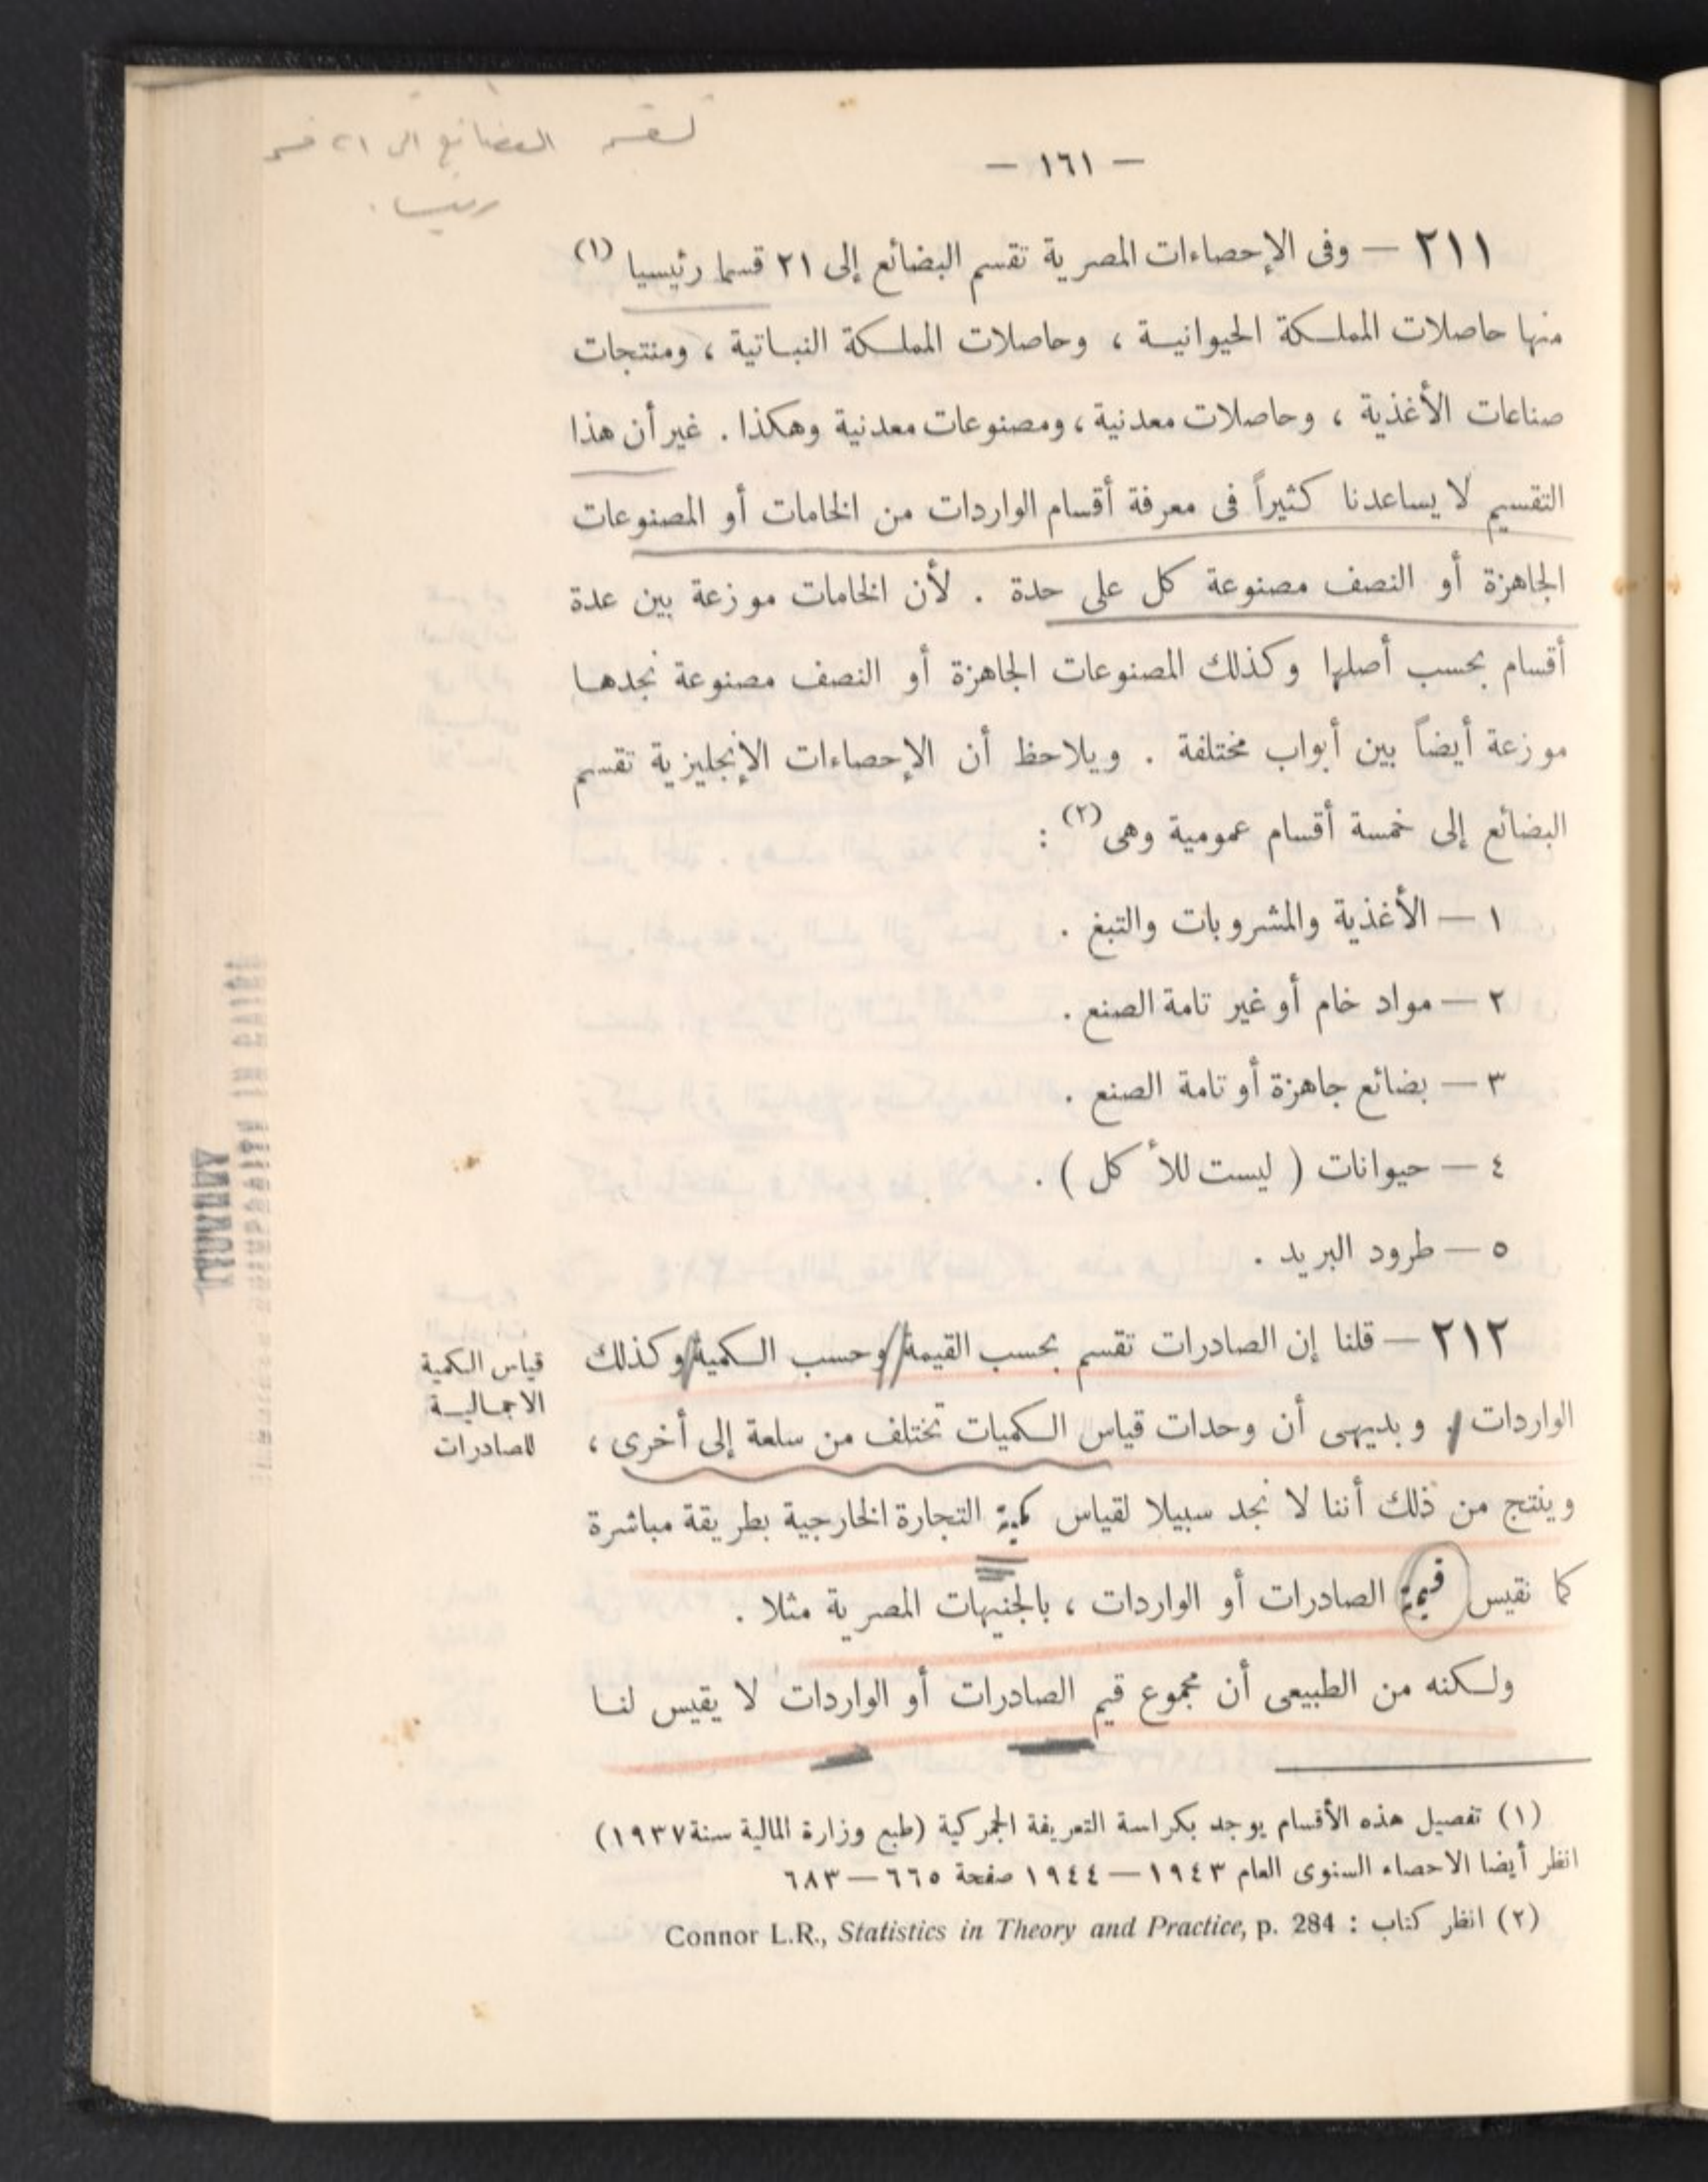 تقسم البضائع الى ٢١ قسم
رئيسيا .
— ١٦١ —
٢١١ — وفى الإحصاءات المصرية تقسم البضائع إلى ٢١ قسما رئيسيا (١)
منها حاصلات المملكة الحيوانية ، وحاصلات المملكة النباتية ، ومنتجات
صناعات الأغذية ، وحاصلات معدنية ، ومصنوعات معدنية وهكذا . غير أن هذا
التقسيم لا يساعدنا كثيراً فى معرفة أقسام الواردات من الخامات أو المصنوعات
الجاهزة أو النصف مصنوعة كل على حدة . لأن الخامات موزعة بين عدة
أقسام بحسب أصلها وكذلك المصنوعات الجاهزة أو النصف مصنوعة نجدها
موزعة أيضاً بين أبواب مختلفة . ويلاحظ أن الإحصاءات الإنجليزية تقسم
البضائع إلى خمسة أقسام عمومية وهى (٢) :
١ — الأغذية والمشروبات والتبغ .
٢ — مواد خام أو غير تامة الصنع .
٣ — بضائع جاهزة أو تامة الصنع .
٤ — حيوانات ( ليست للأكل ) .
٥ — طرود البريد .
قياس الكمية
الاجمالية
للصادرات
٢١٢ — قلنا إن الصادرات تقسم بحسب القيمة وحسب الكمية وكذلك
الواردات . وبديهى أن وحدات قياس الكميات تختلف من سلعة إلى أخرى ،
وينتج من ذلك أننا لا نجد سبيلا لقياس كمية التجارة الخارجية بطريقة مباشرة
كما نقيس قيمة الصادرات أو الواردات ، بالجنيهات المصرية مثلا .
ولكنه من الطبيعى أن مجموع قيم الصادرات أو الواردات لا يقيس لنا
(١) تفصيل هذه الأقسام يوجد بكراسة التعريفة الجمركية (طبع وزارة المالية سنة ١٩٣٧)
انظر أيضا الاحصاء السنوى العام ١٩٤٣ — ١٩٤٤ صفحة ٦٦٥ — ٦٨٣
(٢) انظر كتاب : Connor L.R., Statistics in Theory and Practice, p. 284